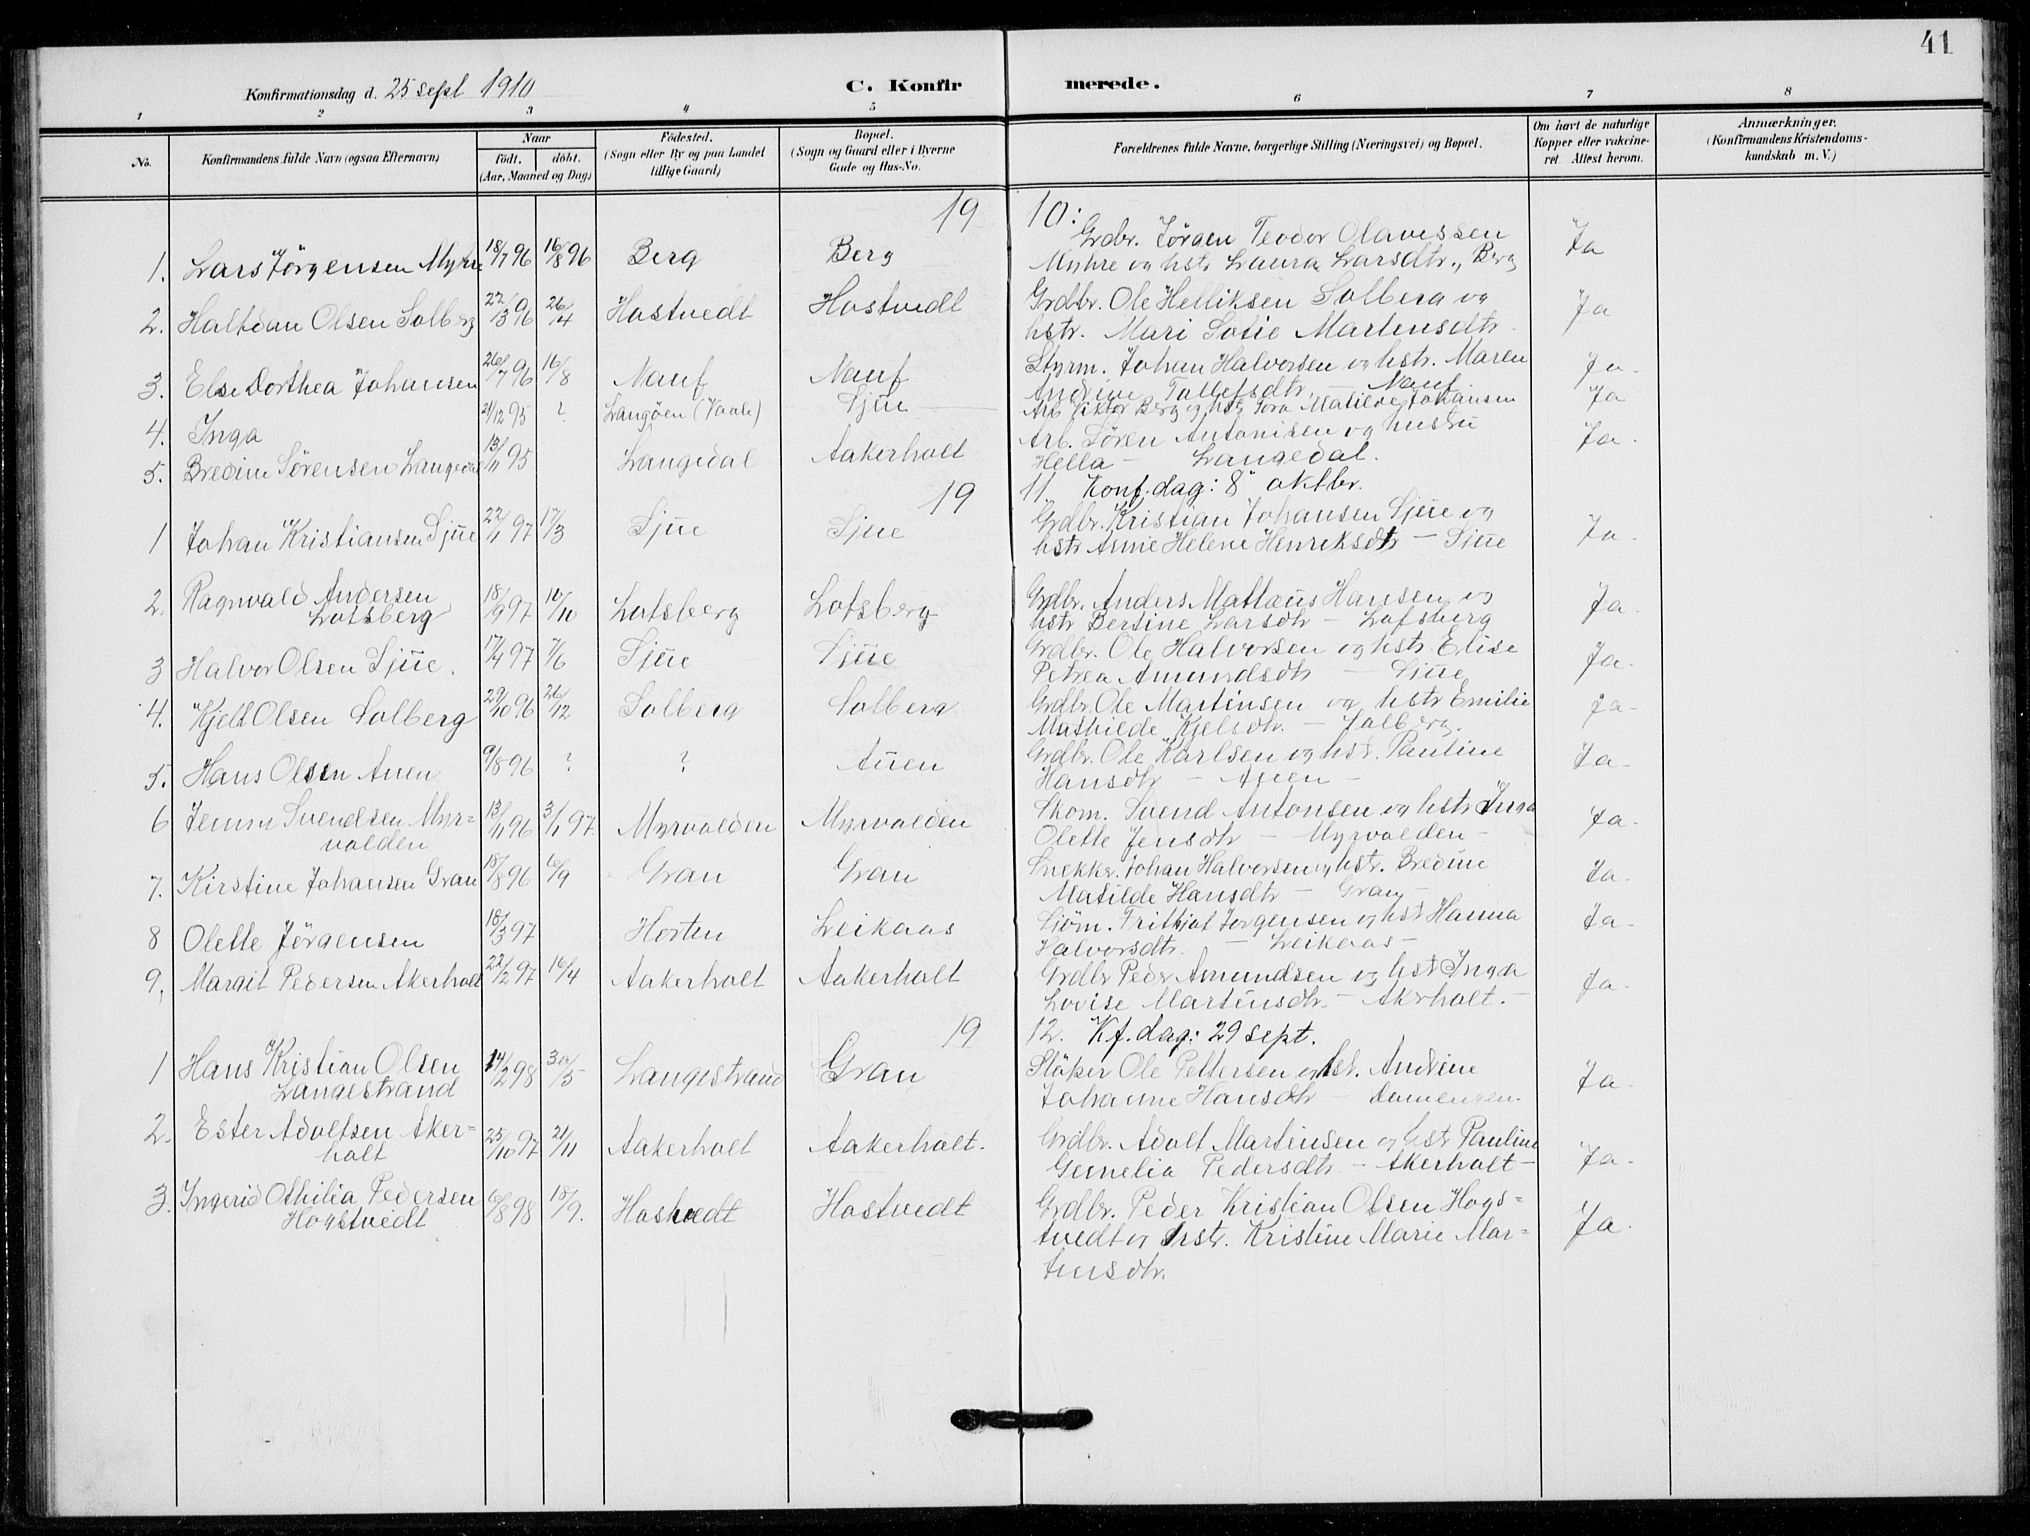 41
Konfirmationsdag d. 25 sept 1910 C. Konfirmerede.
1 2 3 4 5 6 7 8
No. Konfirmandens fulde Navn (ogsaa Efternavn) Naar født. døbt. (Aar, Maaned og Dag) Fødested. (Sogn eller By og paa Landet tillige Gaard) Bopæl. (Sogn og Gaard eller i Byerne Gade og Hus-No. Forældrenes fulde Navne, borgerlige Stilling (Næringsvei) og Bopæl. Om havt de naturlige Kopper eller vakcineret. Attest herom. Anmærkninger. (Konfirmandens Kristendomskundskab m. V.)
19 10:
1. Lars Jørgensen Myhre 18/7 96 16/8 96 Berg Berg Grdbr. Jørgen Teodor Olavessen Ja
Myhre og hstr Laura Larsdtr., Berg
2. Halfdan Olsen Solberg 22/3 96 26/4 Hostvedt Hostvedt Grdbr. Ole Helliksen Solberg og Ja
hstr. Mari Sofie Martensdtr.
3. Else Dorthea Johansen 26/7 96 16/8 Nauf Nauf Styrm. Johan Halvorsen og hstr. Maren Ja
Andrine Tollefsdtr. — Nauf
4. Inga 21/12 95 ? Langøen (Vaale) Sjue Arb. Viktor Berg og hstr Tora Matilde Johansen Ja
5. Bredine Sørensen Langedal 13/11 95 Langedal Aakerholt Arb. Søren Antonisen og hustru Ja.
Hella — Langedal.
19 11. Konf.dag: 8 oktbr.
1 Johan Kristiansen Sjue 22/1 97 17/3 Sjue Sjue Grdbr. Kristian Johansen Sjue og Ja.
hstr Anne Helene Henriksdtr — Sjue
2. Ragnvald Andersen Lofsberg 18/9 97 10/10 Lofsberg Lofsberg Grdbr. Anders Mattæus Hansen og Ja.
hstr Bersine Larsdtr — Lofsberg
3 Halvor Olsen Sjue. 17/4 97 7/6 Sjue Sjue Grdbr. Ole Halvorsen og hstr. Elise Ja.
Petrea Amundsdtr — Sjue
4. Kjell Olsen Solberg 29/10 96 26/12 Solberg Solberg Grdbr. Ole Martinsen og hstr Emilie Ja-
Mathilde Kjelsdtr. — Solberg.
5. Hans Olsen Auen 9/8 96 ? ? Auen Grdbr. Ole Karlsen og hst. Pauline Ja-
Hansdtr — Auen —
6 Jenny Svendsen Myrvolden 13/11 96 3/1 97. Myrvolden Myrvolden Skom. Svend Antonsen og hstr Inga Ja-
Olette Jensdtr — Myrvolden —
7. Kirstine Johansen Gran 18/8 96 6/9 Gran Gran Snekker Johan Halvorsen og hstr. Bredine Ja.
Matilde Hansdtr — Gran —
8 Olette Jørgensen 18/3 97 Horten Leikaas Sjøm. Fritjof Jørgensen og hst Hanna Ja-
Halvorsdtr. — Leikaas —
9. Margit Pedersen Akerholt 22/2 97 16/4 Aakerholt Aakerholt Grdbr Peder Amundsen og hst Inga Ja-
Lovise Martinsdtr. — Akerholt. —
19 12. Kf.dag: 29 sept.
1 Hans Kristian Olsen Langestrand 14/2 98 30/5 Langestrand Gran Støker Ole Pettersen og hst. Andrine Ja-
Johanne Hansdtr — Damengen.
2. Ester Adolfsen Akerholt 25/10 97 21/11 Aakerholt Aakerholt. Grdbr. Adolf Martinsen og hstr Pauline Ja.
Gemelia Pedersdtr. — Akerholt —
3. Ingerid Othilia Pedersen Hogstvedt 6/8 98 18/9. Hostvedt Hostvedt Grdbr. Peder Kristian Olsen Hogs= Ja.
tvedt og hstr. Kristine Marie Mar=
tinsdtr.